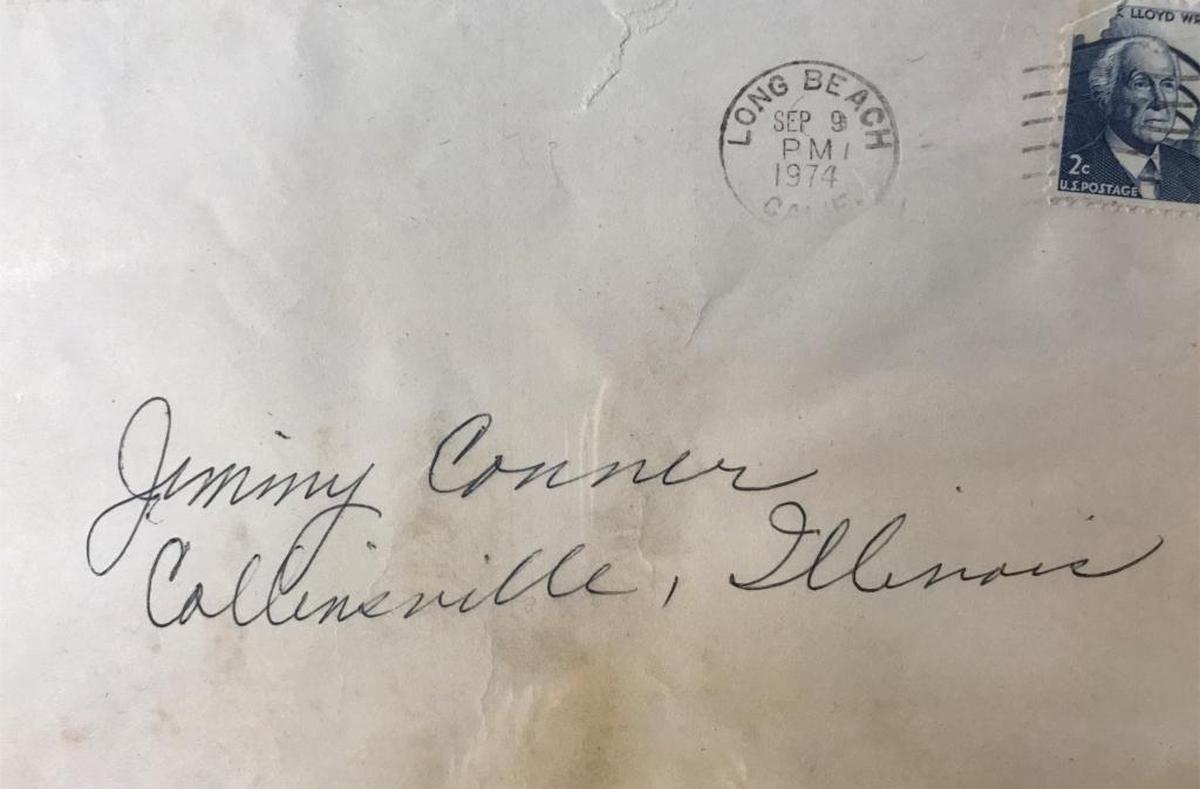 LLOYD
LONG BEACH
SEP 9
PM
1974
CALIF.
2c
U.S. POSTAGE
Jimmy Conner
Collinsville, Illinois